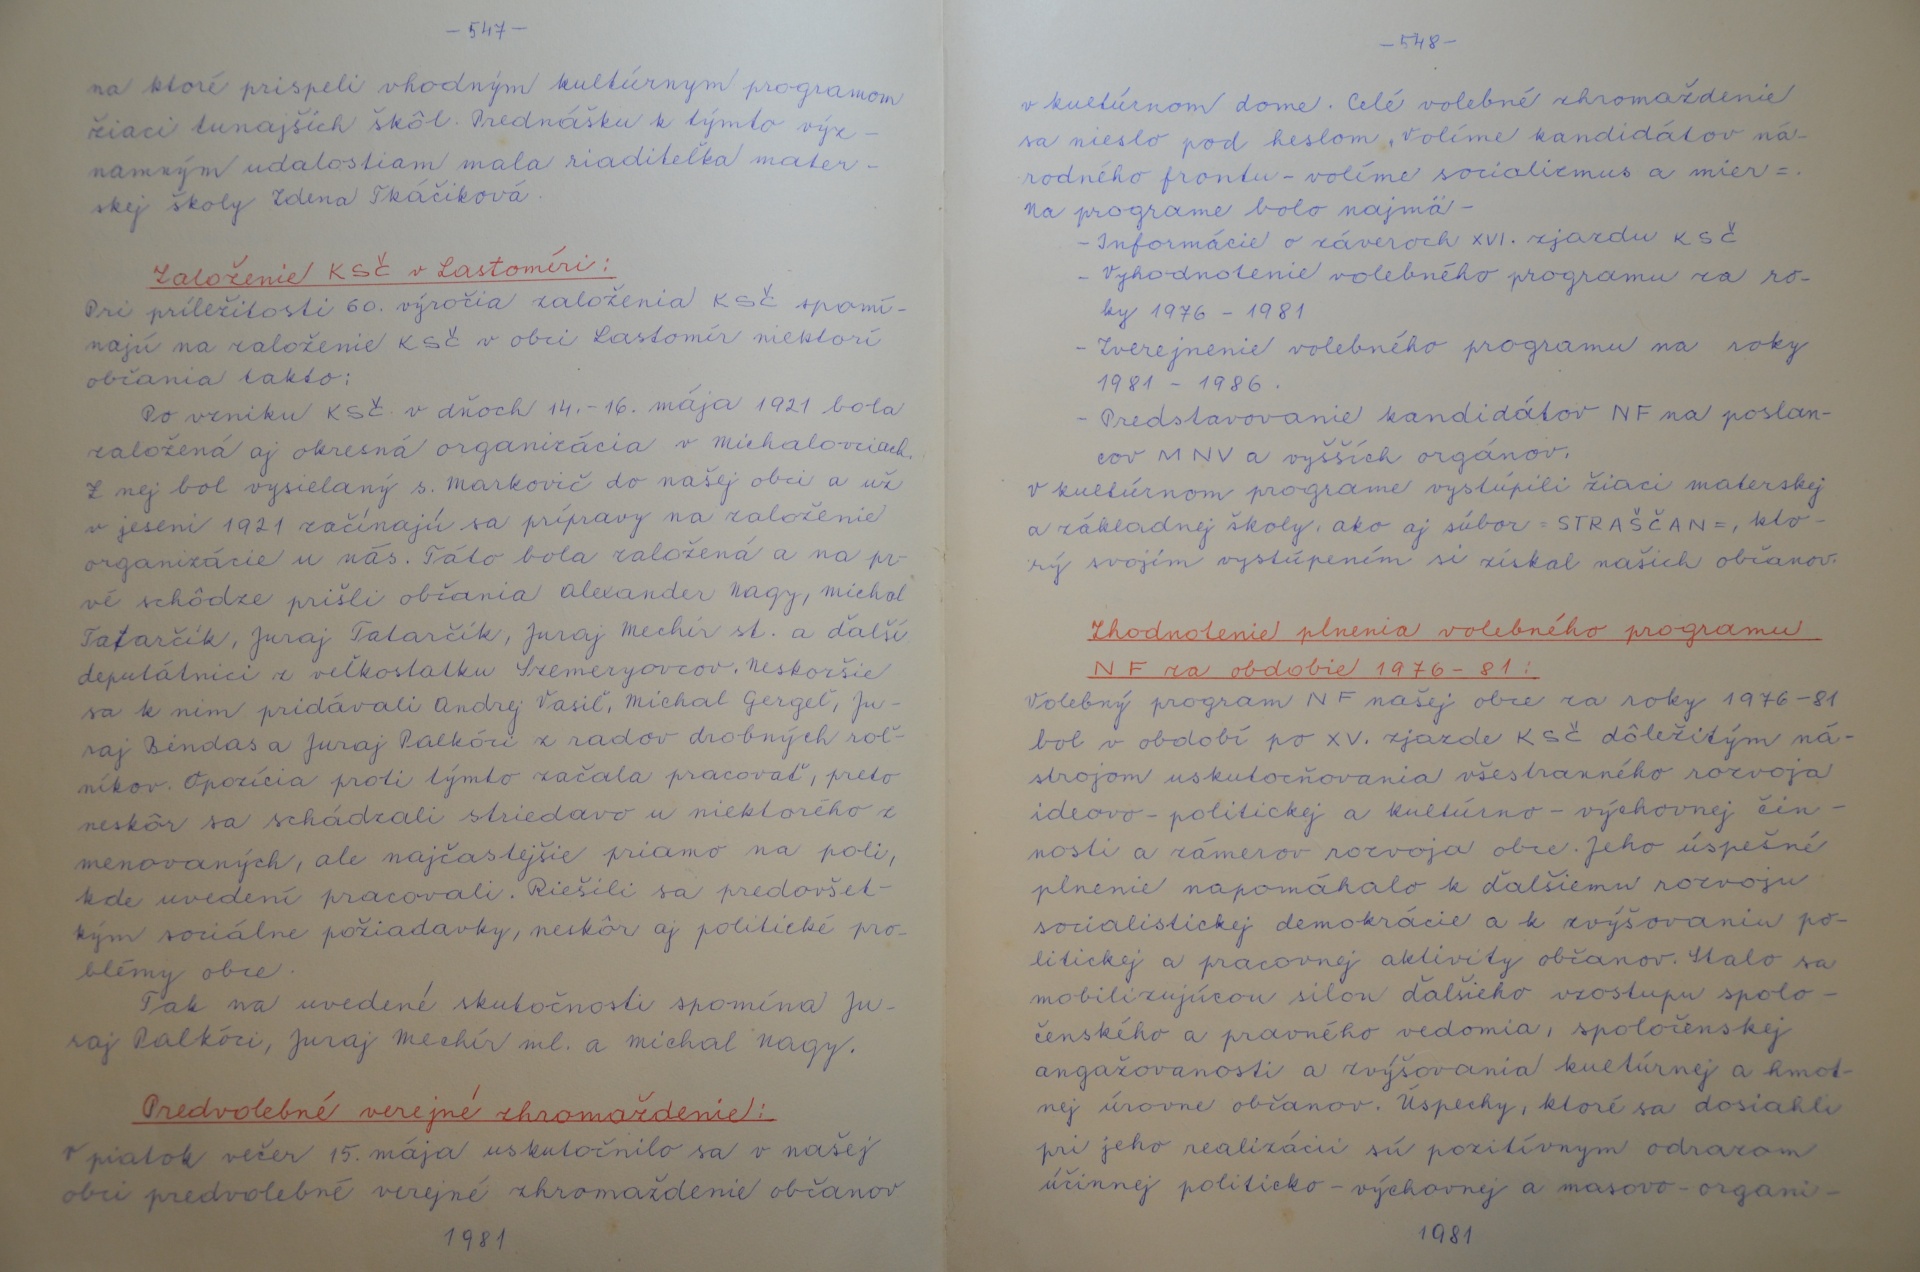 -547-
na ktoré prispeli vhodným kultúrnym programom
žiaci tunajších škôl. Prednášku k týmto výz-
namným udalostiam mala riaditeľka mater-
skej školy Zdena Tkáčiková.
Založenie KSČ v Lastomíri:
Pri príležitosti 60. výročia založenia KSČ spomí-
najú na založenie KSČ v obci Lastomír niektorí
občania takto:
Po vzniku KSČ v dňoch 14.-16. mája 1921 bola
založená aj okresná organizácia v Michalovciach.
Z nej bol vysielaný s. Markovič do našej obci a už
v jeseni 1921 začínajú sa prípravy na založenie
organizácie u nás. Táto bola založená a na pr-
vé schôdze prišli občania Alexander Nagy, Michal
Tatarčík, Juraj Tatarčík, Juraj Mechír st. a ďalší
deputátnici z veľkostatku Szemeryovcov. Neskoršie
sa k nim pridávali Andrej Vasiľ, Michal Gergeľ, Ju-
raj Bindas a Juraj Palkóci z radov drobných roľ-
níkov. Opozícia proti týmto začala pracovať, preto
neskôr sa schádzali striedavo u niektorého z
menovaných, ale najčastejšie priamo na poli,
kde uvedení pracovali. Riešili sa predovšet-
kým sociálne požiadavky, neskôr aj politické pro-
blémy obce.
Tak na uvedené skutočnosti spomína Ju-
raj Palkóci, Juraj Mechír ml. a Michal Nagy.
Predvolebné verejné zhromaždenie:
V piatok večer 15. mája uskutočnilo sa v našej
obci predvolebné verejné zhromaždenie občanov
1981
-548-
v kultúrnom dome. Celé volebné zhromaždenie
sa nieslo pod heslom „Volíme kandidátov ná-
rodného frontu - volíme socializmus a mier=.
Na programe bolo najmä -
- Informácie o záveroch XVI. zjazdu KSČ
- Vyhodnotenie volebného programu za ro-
ky 1976 - 1981
- Zverejnenie volebného programu na roky
1981 - 1986.
- Predstavovanie kandidátov NF na poslan-
cov MNV a vyšších orgánov.
V kultúrnom programe vystúpili žiaci materskej
a základnej školy, ako aj súbor =STRAŠČAN=, kto-
rý svojím vystúpením si získal našich občanov.
Zhodnotenie plnenia volebného programu
NF za obdobie 1976-81:
Volebný program NF našej obce za roky 1976-81
bol v období po XV. zjazde KSČ dôležitým ná-
strojom uskutočňovania všestranného rozvoja
ideovo-politickej a kultúrno-výchovnej čin-
nosti a zámerov rozvoja obce. Jeho úspešné
plnenie napomáhalo k ďalšiemu rozvoju
socialistickej demokrácie a k zvýšovaniu po-
litickej a pracovnej aktivity občanov. Stalo sa
mobilizujúcou silou ďalšieho vzostupu spolo-
čenského a pravného vedomia, spoločenskej
angažovanosti a zvýšovania kultúrnej a hmot-
nej úrovne občanov. Úspechy, ktoré sa dosiahli
pri jeho realizácii sú pozitívnym odrazom
účinnej politicko-výchovnej a masovo-organi-
1981